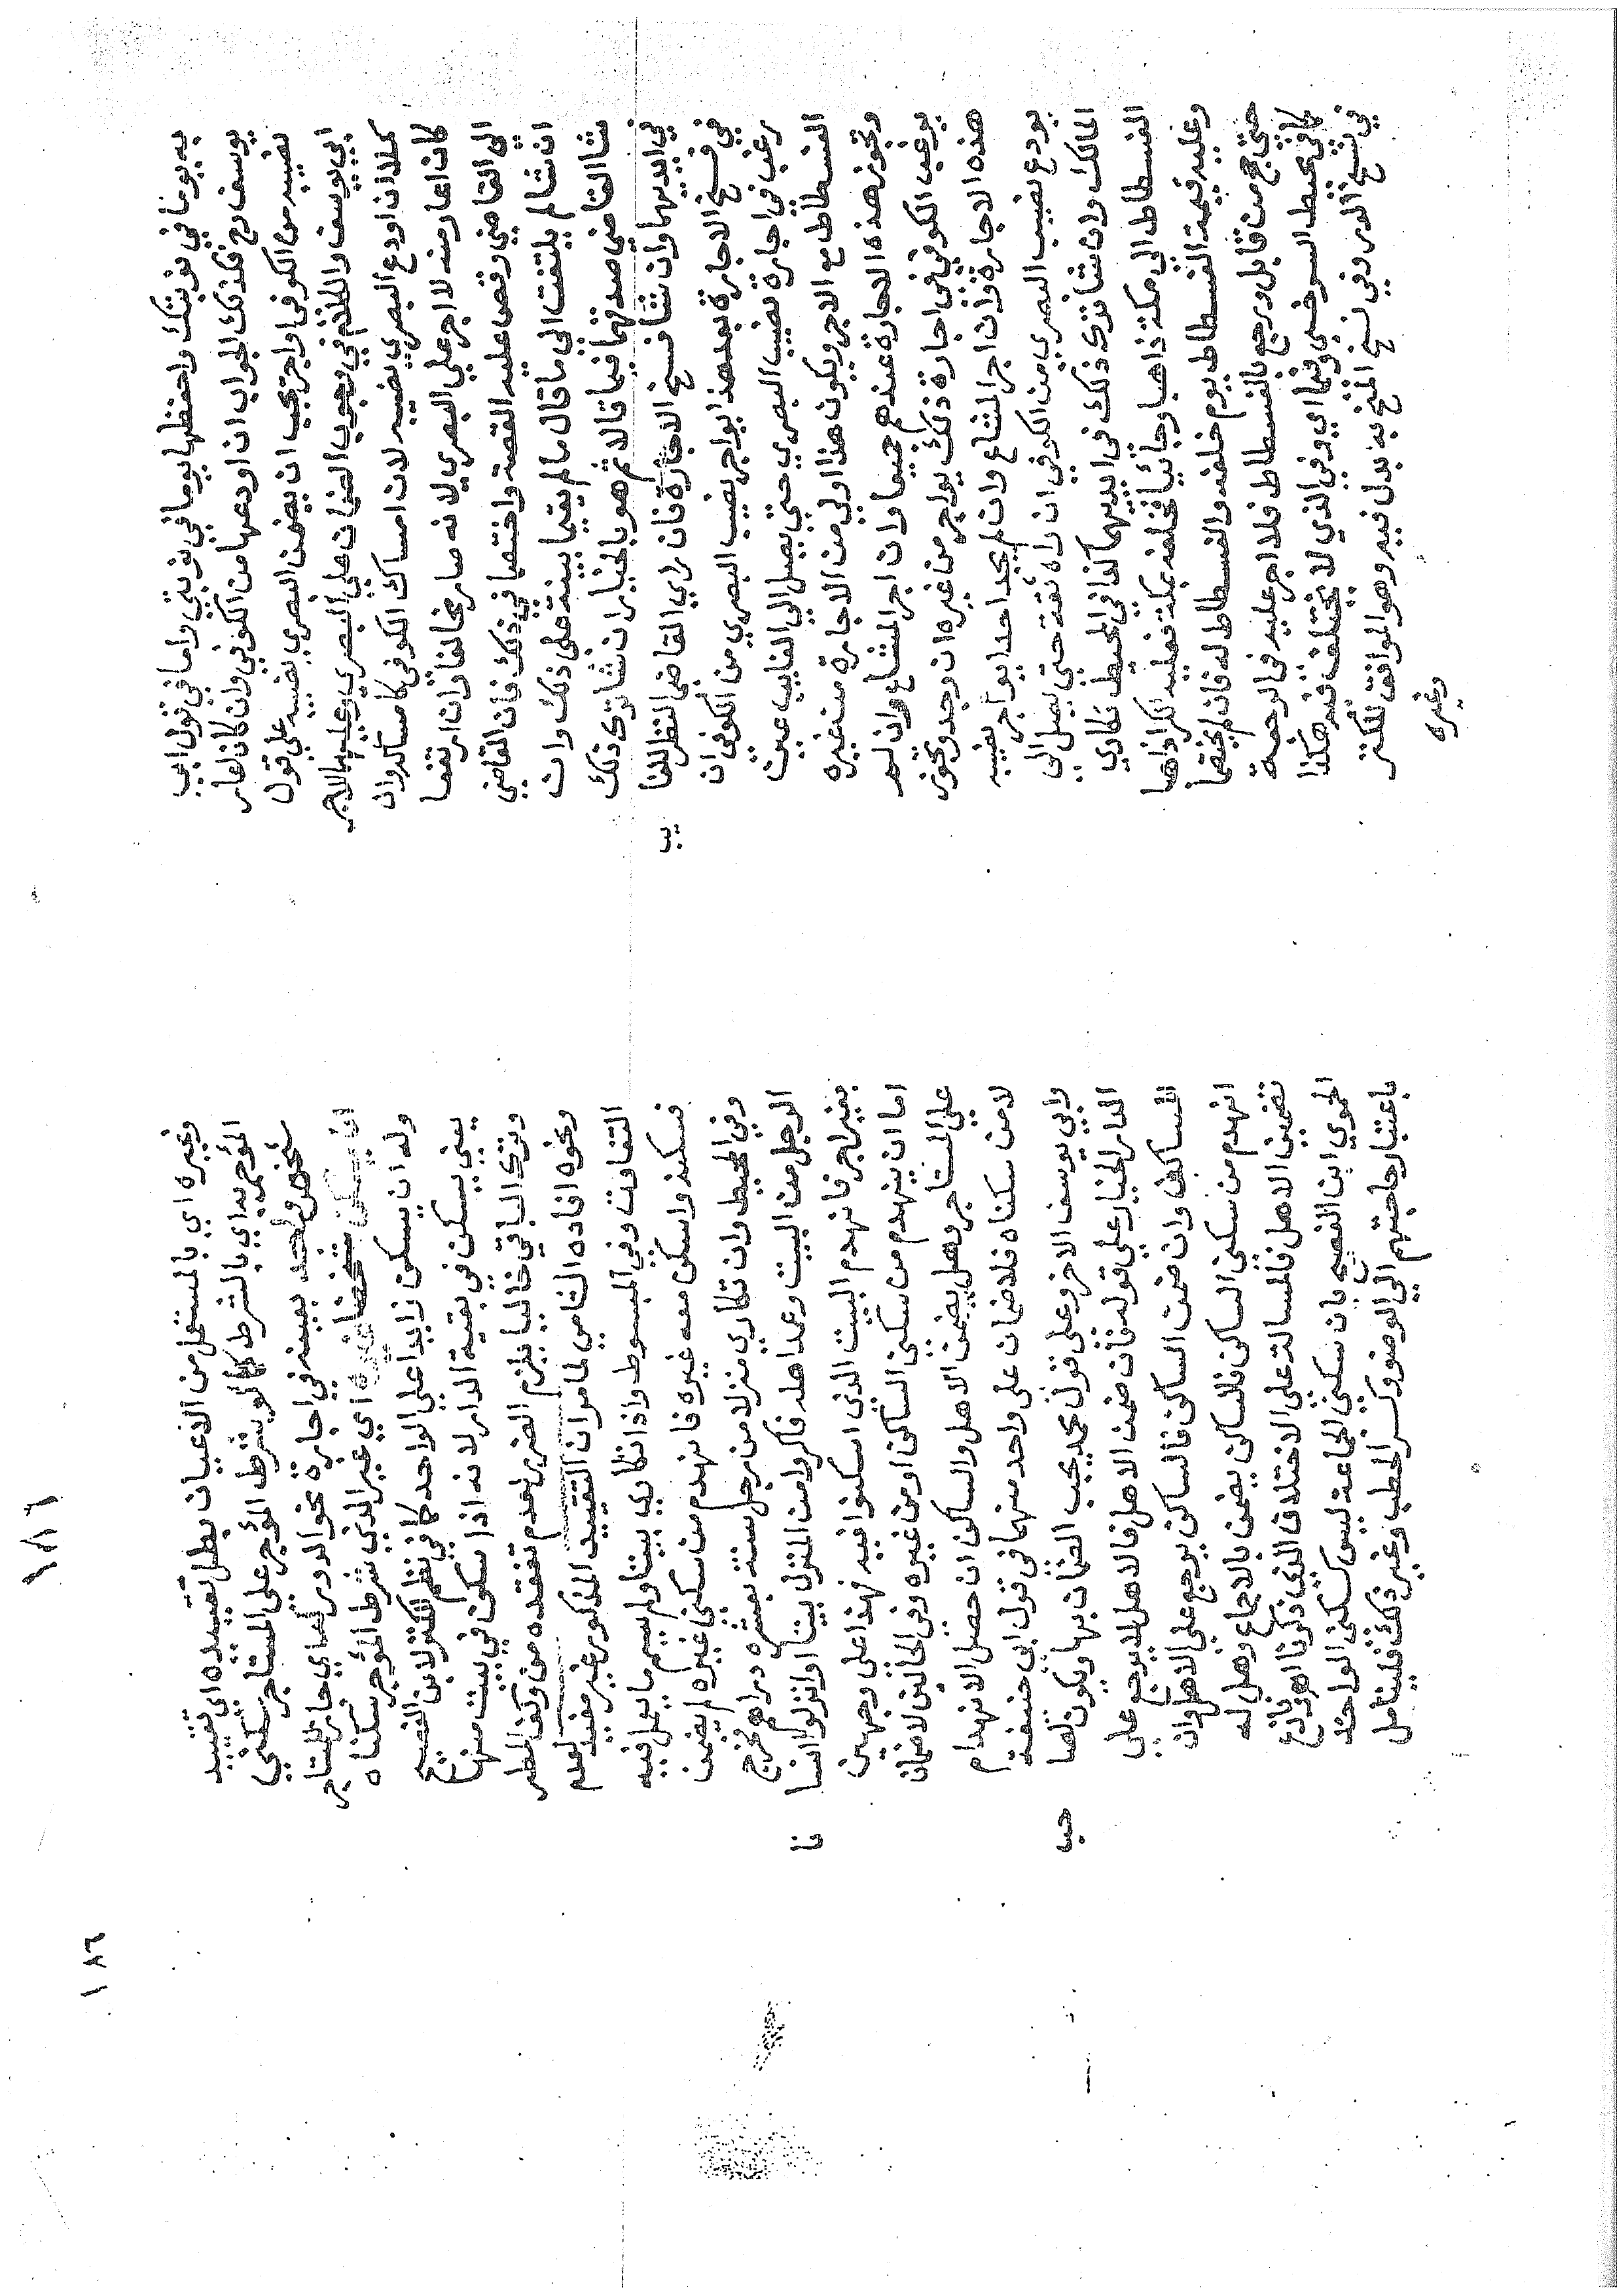 به يوما في نوبتك واحفظها يوما في نوبتي واما في قول ابي
يوسف رح فكذلك الجواب ان اودعها من الكوفي وان كان اعار
نصيبه من الكوفي او اجر يجب ان يضمن البصري نصيبه علي قول
ابي يوسف والكلام في وجوب الضمان علي البصري وعليهما الاجر
كملا ان اودع البصري نصيبه لان امساك الكوفي كامساكه وان
كان اعار منه لا اجر علي البصري لانه صار مخالفا وان ارتفعا
الي القاضي وقص عليه القصة واختصما في ذلك فان القاضي
ان شا لم يلتفت الي ما قال ما لم يقيما بينة علي ذلك وان
شا القاضي صدقهما فيما قالا ثم هو بالخيار ان شا ترك ذلك
في ايديهما وان شا فسخ الاجارة فان راي القاضي النظر للغا
يب
في فسخ الاجارة بعد هذا يواجر نصيب البصري من الكوفي ان
رغب في اجارة نصيب البصري حتي يصل الي الغايب عين
الفسطاط مع الاجر ويكون هذا اولي من الاجارة من غيره
وتجوز هذه الاجارة عندهم جميعا وان اجر المشاع وان لم
يرغب الكوفي في اجارة ذلك يواجر من غيره ان وجد وتجوز
هذه الاجارة وان اجر المشاع وان لم يجد احدا يواجر نصيبه
يودع نصيب البصري من الكوفي ان راه ثقة حتي يصل الي
المالك وان شا ترك ذلك في ايديهما كذا في المحيط تكاري
الفسطاط الي مكة ذاهبا وجائيا فخلفه بمكة فعليه الكرا ذاهبا
وعليه قيمة الفسطاط يوم خلفه والفسطاط له فان لم يختصما
حتي حج من قابل ورجع بالفسطاط فلا اجر عليه في الرجعة
كما في محيط السرخسي وفيما اي وفي الذي لا يختلف فيه هكذا
في نسخ الدر وفي نسخ المنح به بدل فيه وهو الموافق للكنز
وغيره
١٨٦
وغيره اي بالمستعمل من الاعيان بطل تقييده اي تقييد
المؤجر به اي بالشرط كما لو شرط المؤجر علي المستاجر سكني
شخص واحد بعينه في اجارة نحو الدور له اي جاز للمستاجر
ان يسكن شخصا غيره اي غير الذي شرط المؤجر سكناه
وله ان يسكن زايدا علي الواحد كما في نظم الكنز لابن الفصيح
يعني يسكن في بقية الدار لانه اذا سكن في بيت منها
وترك الباقي خاليا يلزم الضرر لعدم تفقده من وكف المطر
ونحوه افاده الشامي لما مر ان التقييد المذكور غير مفيد لعدم
التفاوت وفي المبسوط واذا تكاري بيتا ولم يسم ما يعمل فيه
فسكنه واسكن معه غيره فانهدم من سكني غيره لم يضمن
وفي المحيط وان تكاري منزلا من رجل سنة بعشرة دراهم فخرج
الرجل من البيت وعمد اهله فاكروا من المنزل بيتا او انزلوا انسا
نا
بغير اجر فانهدم البيت الذي اسكنوا فيه فهذا علي وجهين
اما ان ينهدم من سكني الساكن او من غيره وفي الحالين لا ضمان
علي المستاجر وهل يضمن الاهل والساكن ان حصل الانهدام
لا من سكناه فلا ضمان علي واحد منهما في قول ابي حنيفة
وابي يوسف الاخر وعلي قول محمد يجب الضمان بها ويكون لصا
حب
الدار الخيار وعلي قوله فان ضمن الاهل فالاهل لا يرجع علي
الساكن وان ضمن الساكن فالساكن يرجع علي الاهل وان
انهدم من سكني الساكن فالساكن يضمن بالاجماع وهل له
تضمين الاهل فالمسالة علي الاختلاف الذي ذكرنا
الحموي ابن الفصيح بان سكني الجماعة ليس كسكني الواحد
باعتبار حاجتهم الي الوضوء وكسر الحطب وغير ذلك فليتامل
١٨٦